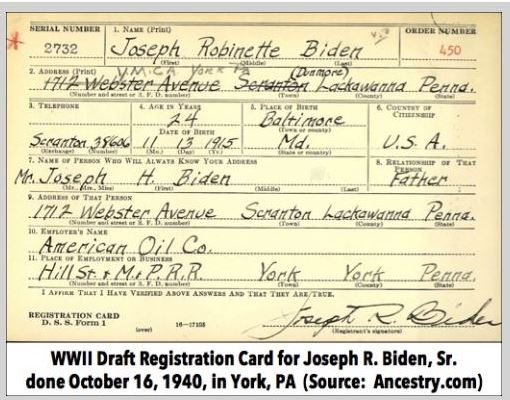 SERIAL NUMBER 1. NAME (Print) ORDER NUMBER
2732 Joseph Robinette Biden 450
(First) (Middle) (Last)
2. ADDRESS (Print) Y.M.C.A York Pa (Dunmore)
1712 Webster Avenue Scranton Lackawanna Penna.
(Number and street or R. F. D. number) (Town) (County) (State)
3. TELEPHONE 4. AGE IN YEARS 5. PLACE OF BIRTH 6. COUNTRY OF CITIZENSHIP
24 Baltimore
DATE OF BIRTH (Town or county)
Scranton 38606 11 13 1915 Md. U.S.A.
(Exchange) (Number) (Mo.) (Day) (Yr.) (State or country)
7. NAME OF PERSON WHO WILL ALWAYS KNOW YOUR ADDRESS 8. RELATIONSHIP OF THAT PERSON
Mr. Joseph H. Biden Father
(Mr., Mrs., Miss) (First) (Middle) (Last)
9. ADDRESS OF THAT PERSON
1712 Webster Avenue Scranton Lackawanna Penna.
(Number and street or R. F. D. number) (Town) (County) (State)
10. EMPLOYER'S NAME
American Oil Co.
11. PLACE OF EMPLOYMENT OR BUSINESS
Hill St. & M. & P. R.R. York York Penna.
(Number and street or R. F. D. number) (Town) (County) (State)
I AFFIRM THAT I HAVE VERIFIED ABOVE ANSWERS AND THAT THEY ARE TRUE.
REGISTRATION CARD
D. S. S. Form 1 (over) 16—17105 Joseph R. Biden
(Registrant's signature)
WWII Draft Registration Card for Joseph R. Biden, Sr.
done October 16, 1940, in York, PA (Source: Ancestry.com)